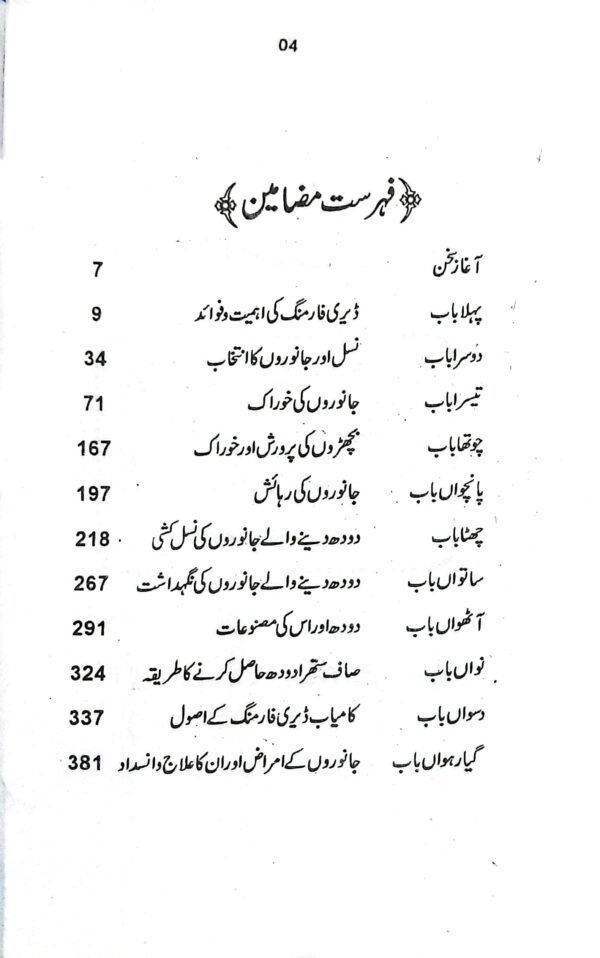 04
فہرست مضامین
آغاز سخن 7
پہلا باب ڈیری فارمنگ کی اہمیت و فوائد 9
دوسرا باب نسل اور جانوروں کا انتخاب 34
تیسرا باب جانوروں کی خوراک 71
چوتھا باب بچھڑوں کی پرورش اور خوراک 167
پانچواں باب جانوروں کی رہائش 197
چھٹا باب دودھ دینے والے جانوروں کی نسل کشی 218
ساتواں باب دودھ دینے والے جانوروں کی نگہداشت 267
آٹھواں باب دودھ اور اس کی مصنوعات 291
نواں باب صاف ستھرا دودھ حاصل کرنے کا طریقہ 324
دسواں باب کامیاب ڈیری فارمنگ کے اصول 337
گیارہواں باب جانوروں کے امراض اور ان کا علاج و انسداد 381